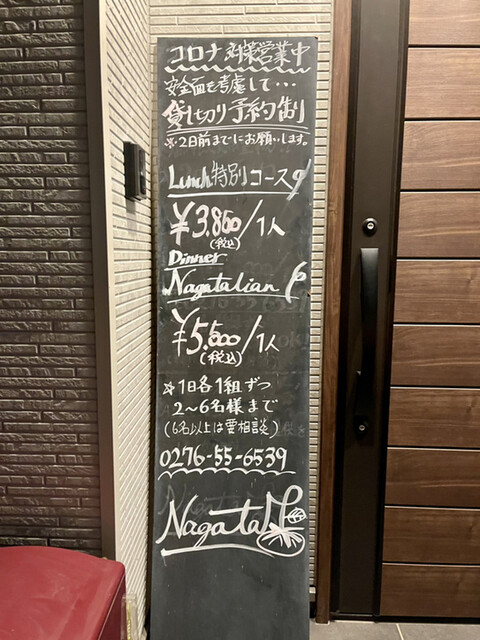 コロナ対策営業中
安全面も考慮して…
貸し切り予約制
※2日前までにお願いします。
Lunch特別コース
¥3.850/1人
(税込)
Dinner
Nagatalian
¥5.500/1人
(税込)
☆1日各1組ずつ
2〜6名様まで
(6名以上は要相談)
0276-55-6539
Nagata